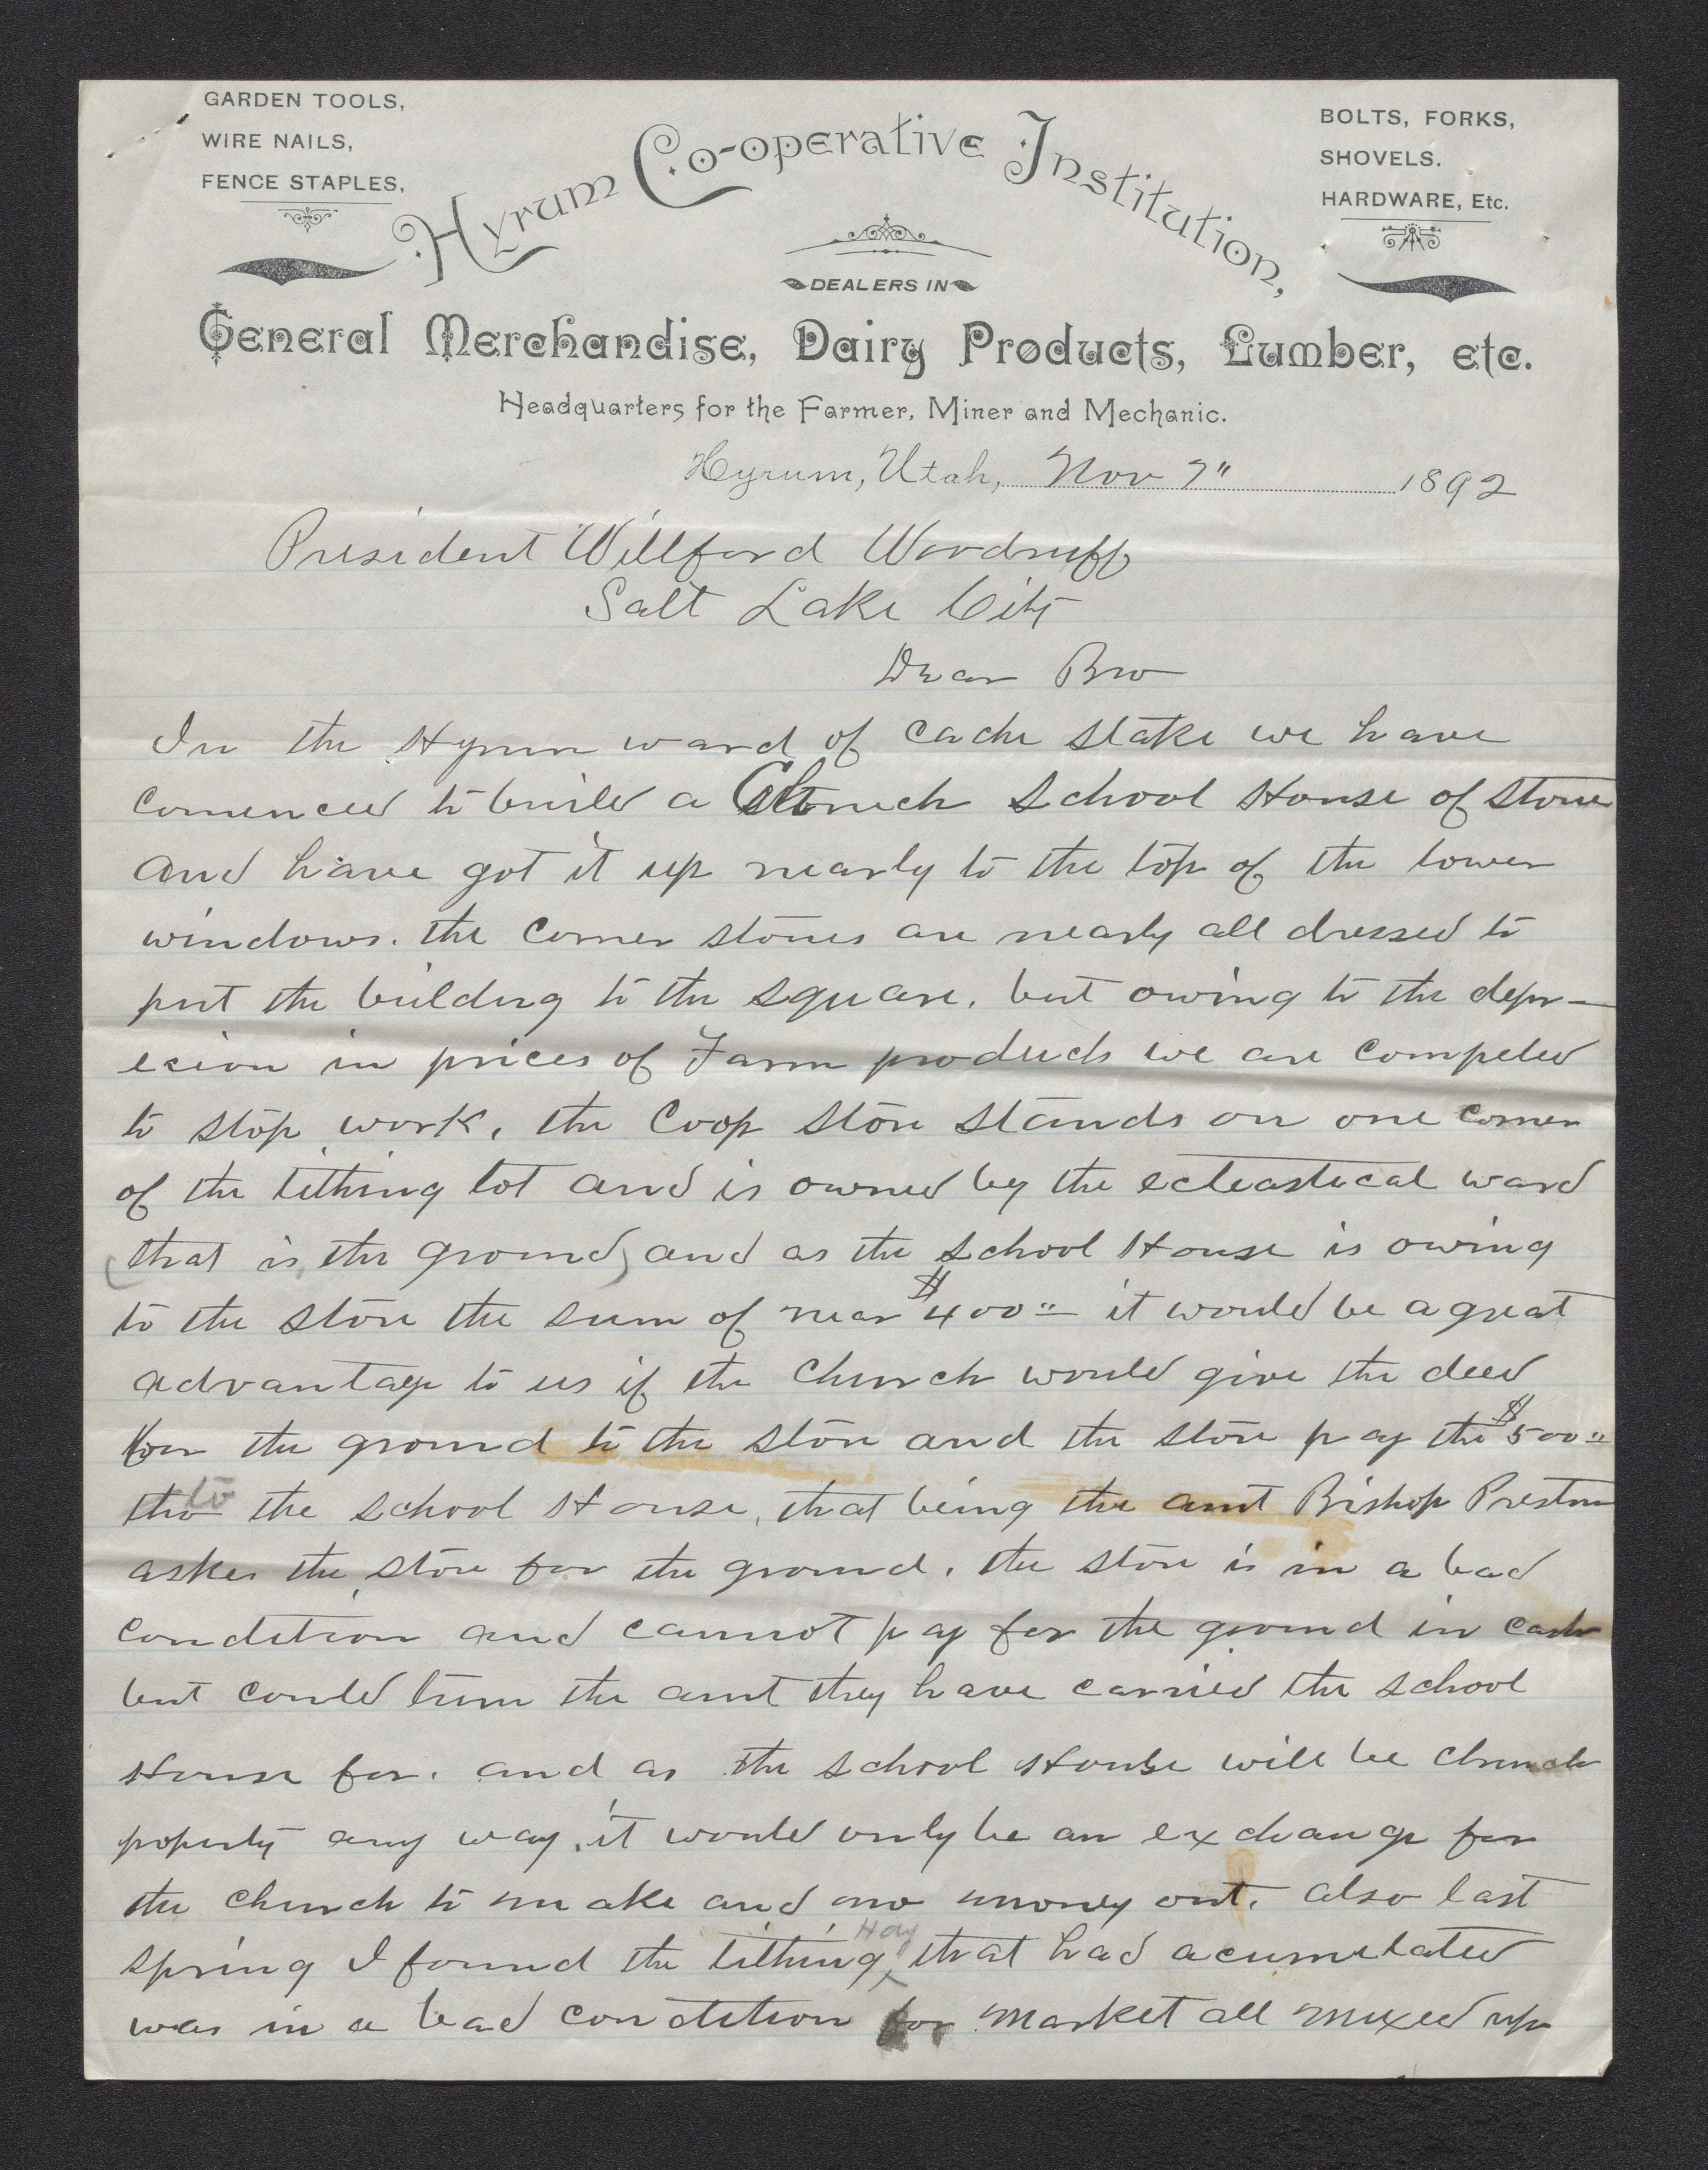 GARDEN TOOLS,
WIRE NAILS,
FENCE STAPLES,
Hyrum Co-operative Institution,
BOLTS, FORKS,
SHOVELS.
HARDWARE, Etc.
DEALERS IN
General Merchandise, Dairy Products, Lumber, etc.
Headquarters for the Farmer, Miner and Mechanic.
Hyrum, Utah, Nov 7" 1892
President Willford Woodruff
Salt Lake City
Dear Bro
In the Hyrum ward of Cache Stake we have
comenced to build a Church School House of Stone
and have got it up nearly to the top of the lower
windows. the corner stones are nearly all dressed to
put the buildng to the square. but owing to the depr-
esion in prices of Farm products we are compeled
to stop work, the Coop Store stands on one corner
of the tithing lot and is owned by the ecleastical ward
(that is, the ground) and as the School House is owing
to the store the sum of near $400" it would be a great
advantage to us if the Church would give the deed
for the ground to the store and the store pay the $500"
to the School House, that being the amt Bishop Preston
askes the store for the ground. the store is in a bad
condition and cannot pay for the ground in cash
but could turn the amt they have carried the school
House for. and as the School House will be Church
property any way. it would only be an exchange for
the church to make and no money out. also last
spring I found the tithing Hay that had acumulated
was in a bad condition for market all mixed up